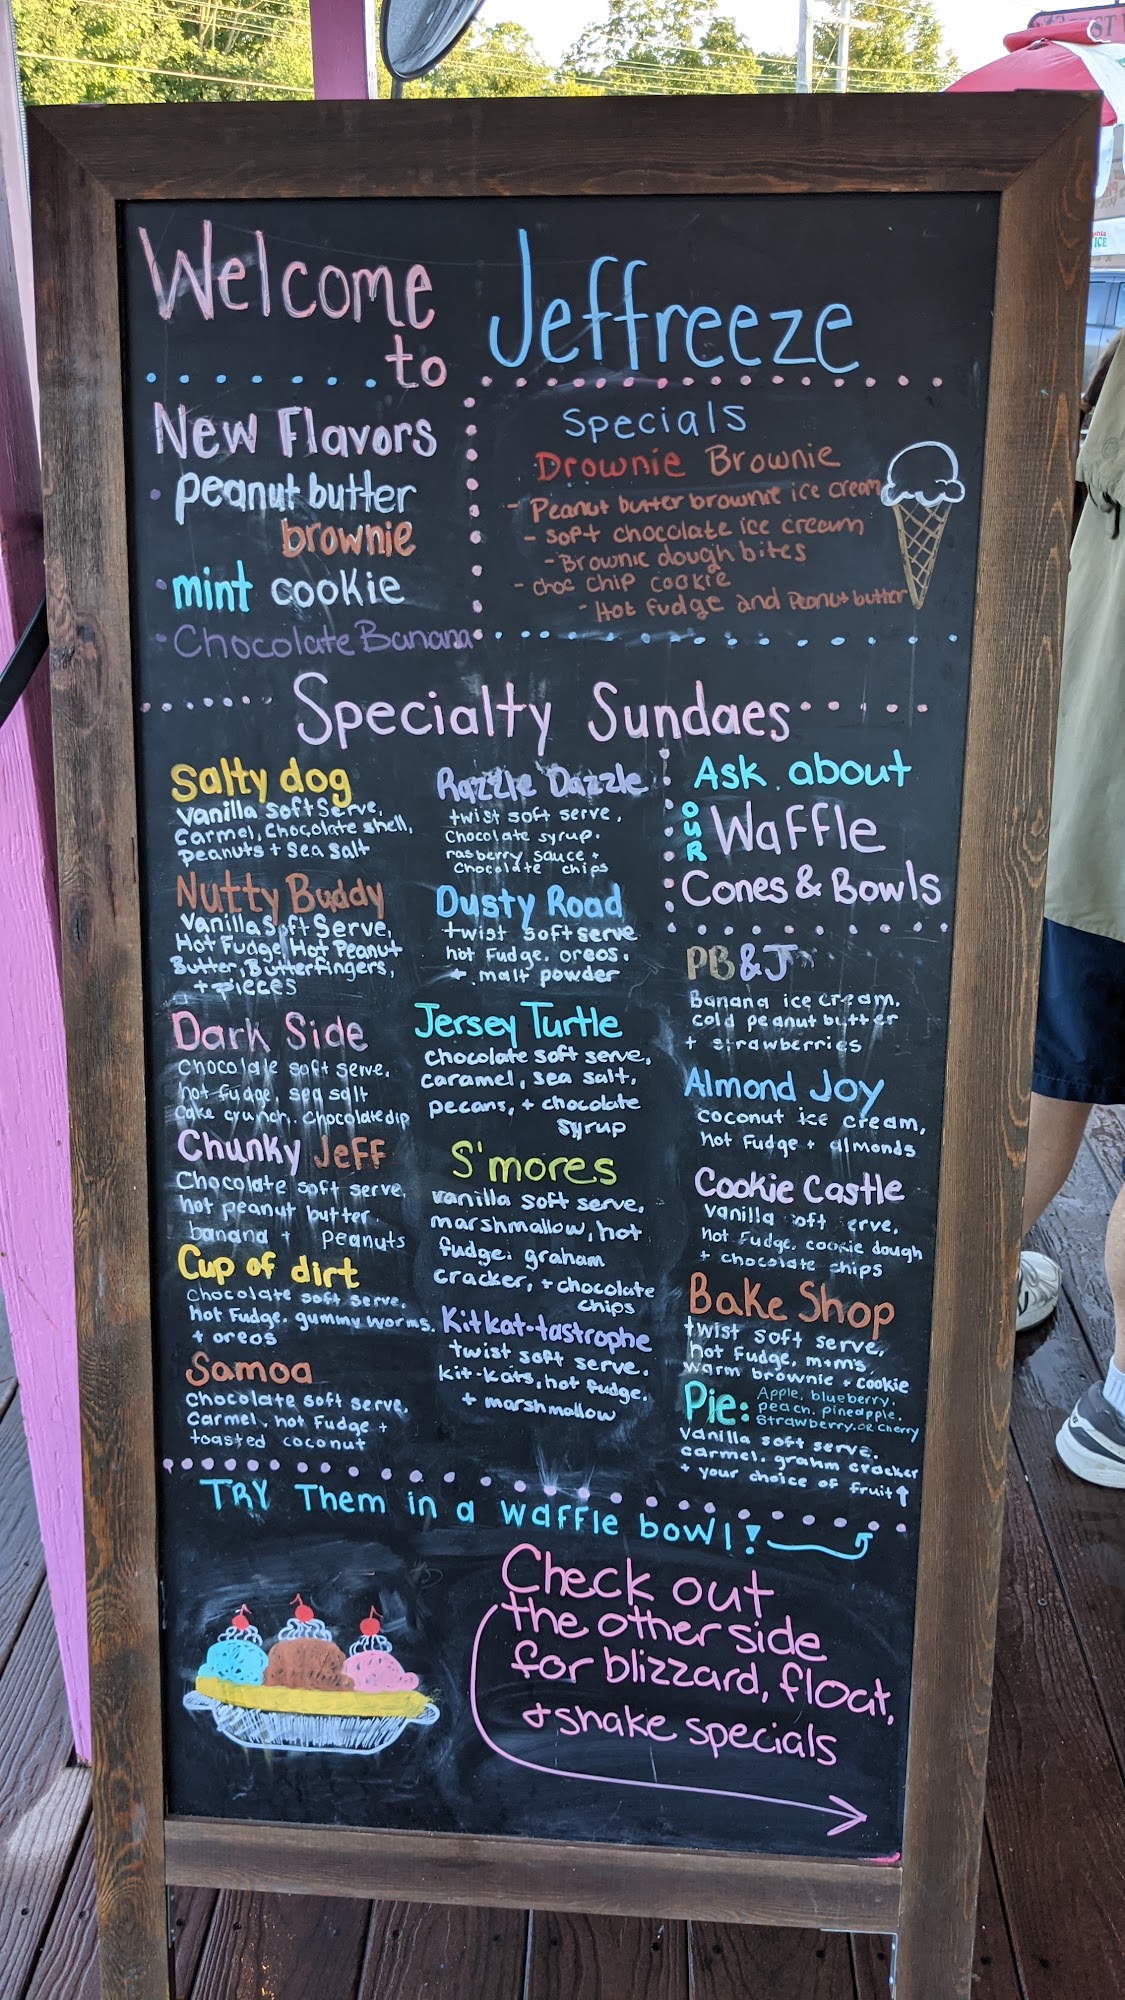 Welcome
to
Jeffreeze
New Flavors
peanut butter
brownie
mint cookie
Chocolate Banana
Specials
Drownie Brownie
- Peanut butter brownie ice cream
- soft chocolate ice cream
- Brownie dough bites
- choc chip cookie
- Hot fudge and Peanut butter
Specialty Sundaes
Salty dog
Vanilla Soft Serve,
Carmel, Chocolate shell,
peanuts + Sea Salt
Nutty Buddy
Vanilla Soft Serve,
Hot Fudge, Hot Peanut
Butter, Butterfingers,
+ pieces
Dark Side
Chocolate soft serve,
hot fudge, sea salt
Cake crunch, Chocolate dip
Chunky Jeff
Chocolate soft serve,
hot peanut butter,
banana + peanuts
Cup of dirt
Chocolate soft serve,
hot Fudge, gummy worms,
+ oreos
Samoa
Chocolate soft serve,
Carmel, hot Fudge +
toasted coconut
Razzle Dazzle
twist soft serve,
Chocolate syrup,
rasberry sauce +
Chocolate chips
Dusty Road
twist soft serve
hot fudge, oreos,
+ malt powder
Jersey Turtle
Chocolate soft serve,
caramel, sea salt,
pecans, + chocolate
syrup
S'mores
vanilla soft serve,
marshmallow, hot
fudge, graham
cracker, + chocolate
chips
Kitkat-tastrophe
twist soft serve,
kit-kats, hot fudge,
+ marshmallow
Ask about
OUR
Waffle
Cones & Bowls
PB&J
Banana ice cream,
cold peanut butter
+ strawberries
Almond Joy
coconut ice cream,
hot Fudge + almonds
Cookie Castle
vanilla soft serve,
hot Fudge, cookie dough
+ chocolate chips
Bake Shop
twist soft serve,
hot fudge, m+m's,
warm brownie + cookie
Pie: Apple, blueberry,
peach, pineapple,
strawberry, OR cherry
vanilla soft serve,
carmel, grahm cracker
+ your choice of fruit
TRY Them in a waffle bowl!
Check out
the other side
for blizzard, float,
+ shake specials
ICE